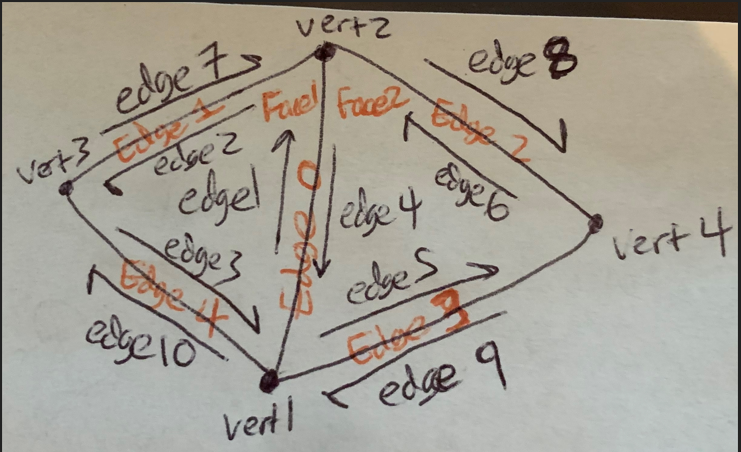 vert2
edge 7
edge 8
Edge 1
Face1
Face2
Edge 2
vert3
edge 2
edge1
Edge 0
edge 4
edge 6
vert 4
edge3
edge 5
Edge 4
Edge 3
edge10
edge 9
vert1